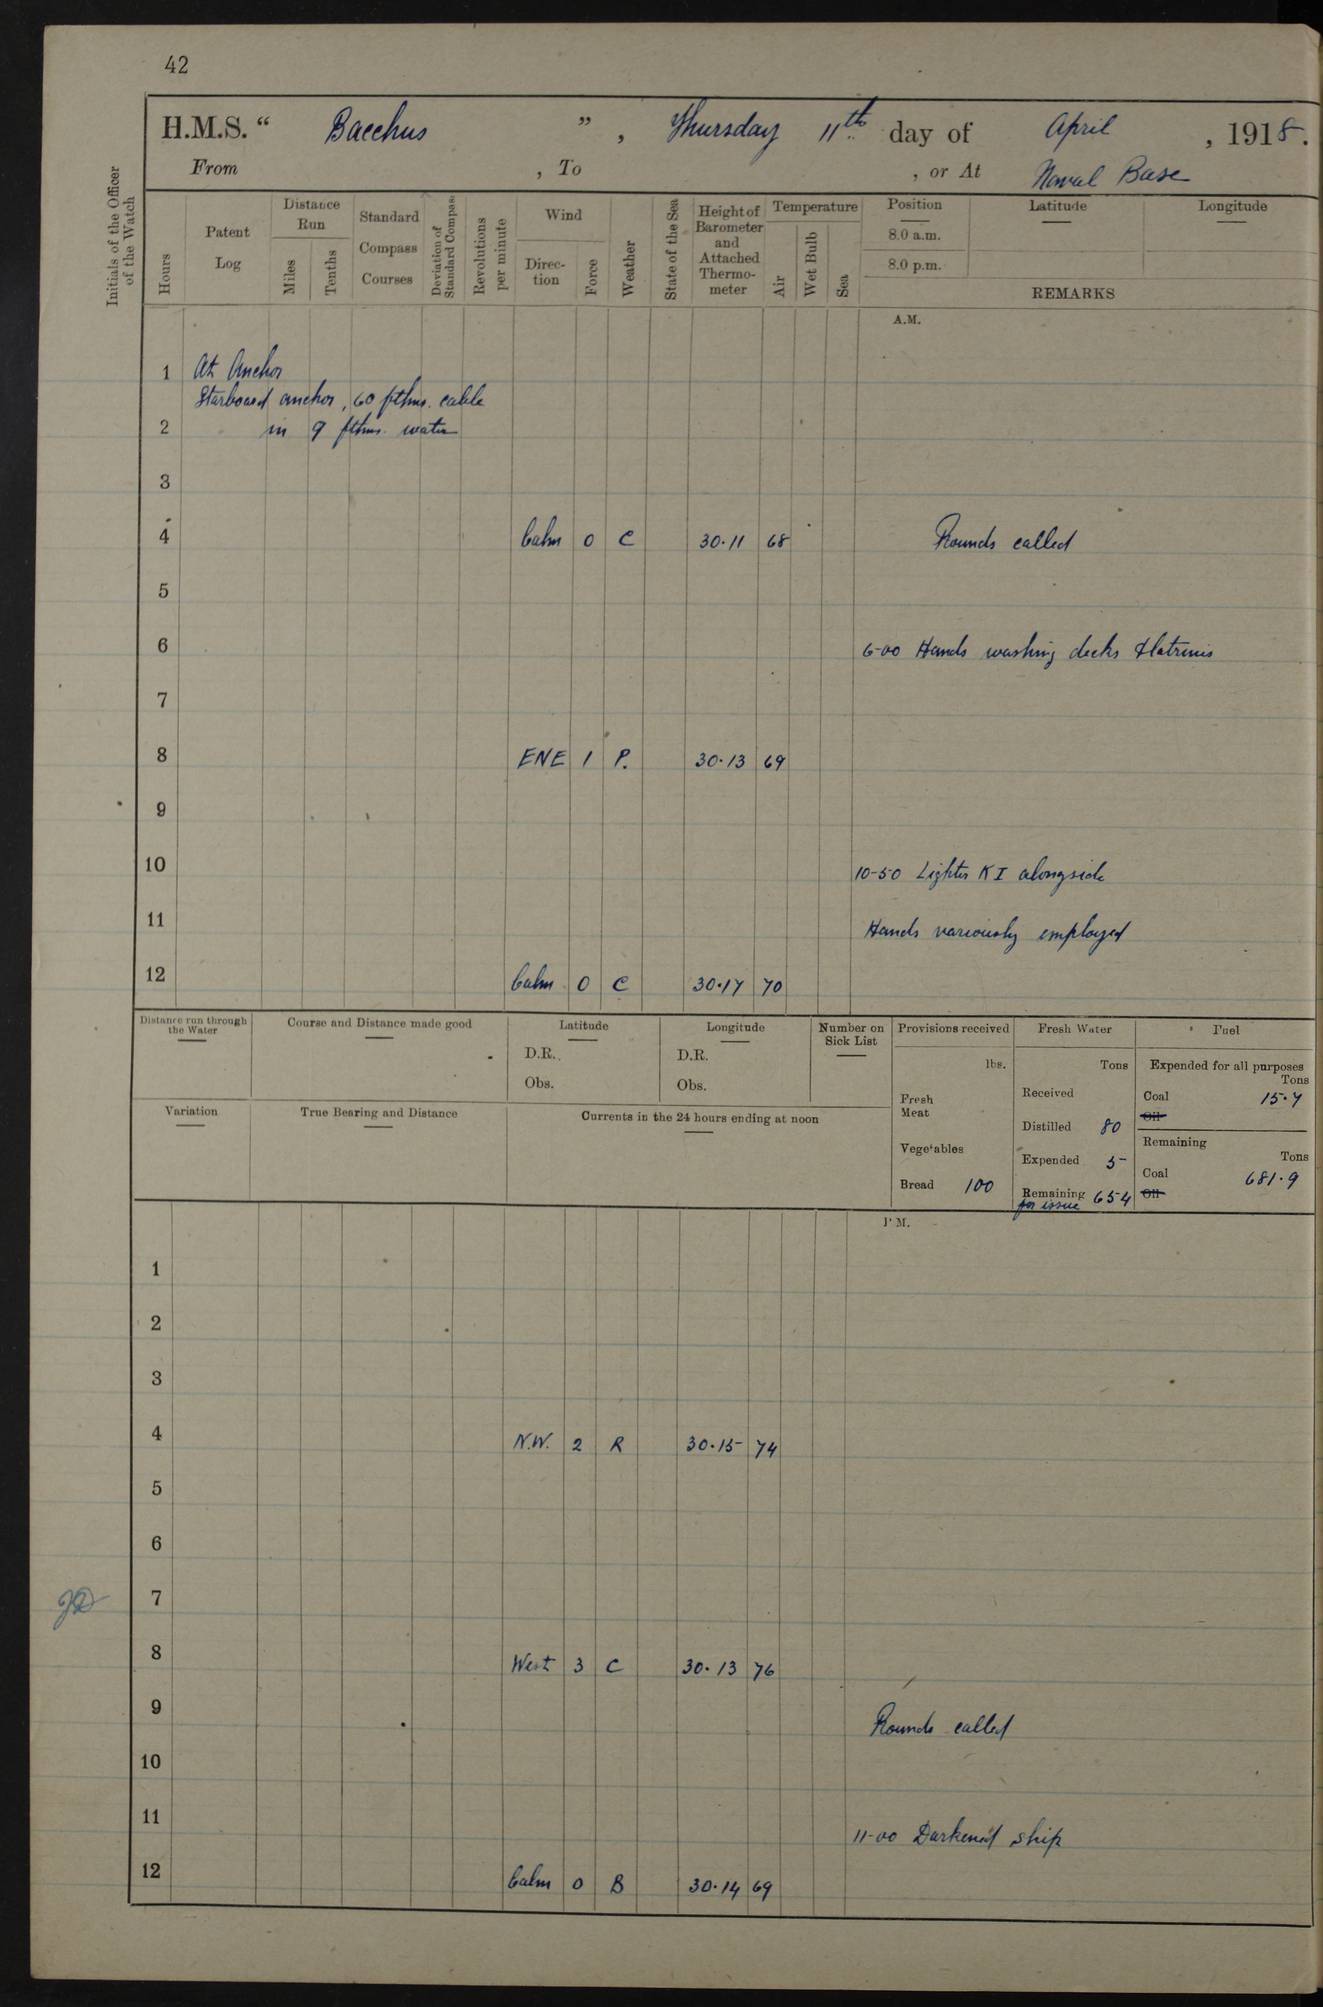 42
H.M.S. “ Bacchus ” , Thursday 11th day of April , 1918.
From , To , or At Naval Base
Initials of the Officer of the Watch
Hours
Patent Log
Distance Run
Miles
Tenths
Standard Compass Courses
Deviation of Standard Compass
Revolutions per minute
Wind
Direc-tion
Force
Weather
State of the Sea
Height of Barometer and Attached Thermo-meter
Temperature
Air
Wet Bulb
Sea
Position
8.0 a.m.
8.0 p.m.
Latitude
Longitude
REMARKS
A.M.
1 At Anchor
Starboard anchor, 60 fthms. cable
2 in 9 fthms. water
3
4 Calm 0 C 30.11 68 Rounds called
5
6 6-00 Hands washing decks & latrines
7
8 ENE 1 P. 30.13 69
9
10 10-50 Lighter K I alongside
11 Hands variously employed
12 Calm 0 C 30.17 70
Distance run through the Water
Course and Distance made good
Latitude
D.R.
Obs.
Longitude
D.R.
Obs.
Number on Sick List
Provisions received
lbs.
Fresh Meat
Vegetables
Bread 100
Fresh Water
Tons
Received
Distilled 80
Expended 5
Remaining for issue 654
Fuel
Expended for all purposes
Tons
Coal 15.7
Oil
Remaining
Tons
Coal 681.9
Oil
Variation
True Bearing and Distance
Currents in the 24 hours ending at noon
P.M.
1
2
3
4 N.W. 2 R 30.15 74
5
6
7
8 West 3 C 30.13 76
9 Rounds called
10
11 11-00 Darkened ship
12 Calm 0 B 30.14 69